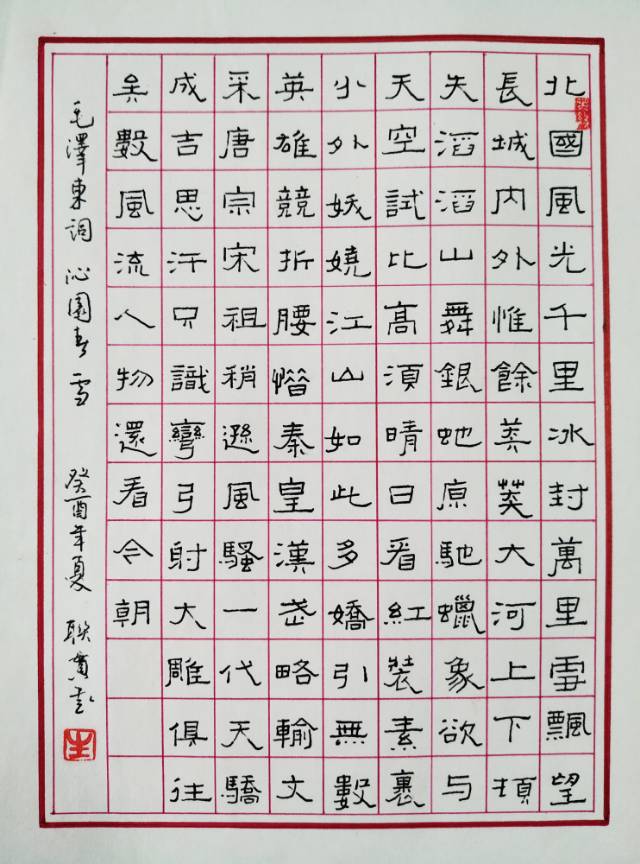 北國風光千里冰封萬里雪飄望
長城內外惟餘莽莽大河上下頓
失滔滔山舞銀蛇原馳蠟象欲与
天空試比高須晴日看紅裝素裹
分外妖嬈江山如此多嬌引無數
英雄競折腰惜秦皇漢武略輸文
采唐宗宋祖稍遜風騷一代天驕
成吉思汗只識彎弓射大雕俱往
矣數風流人物還看今朝
毛澤東詞 沁園春 雪 癸酉年夏